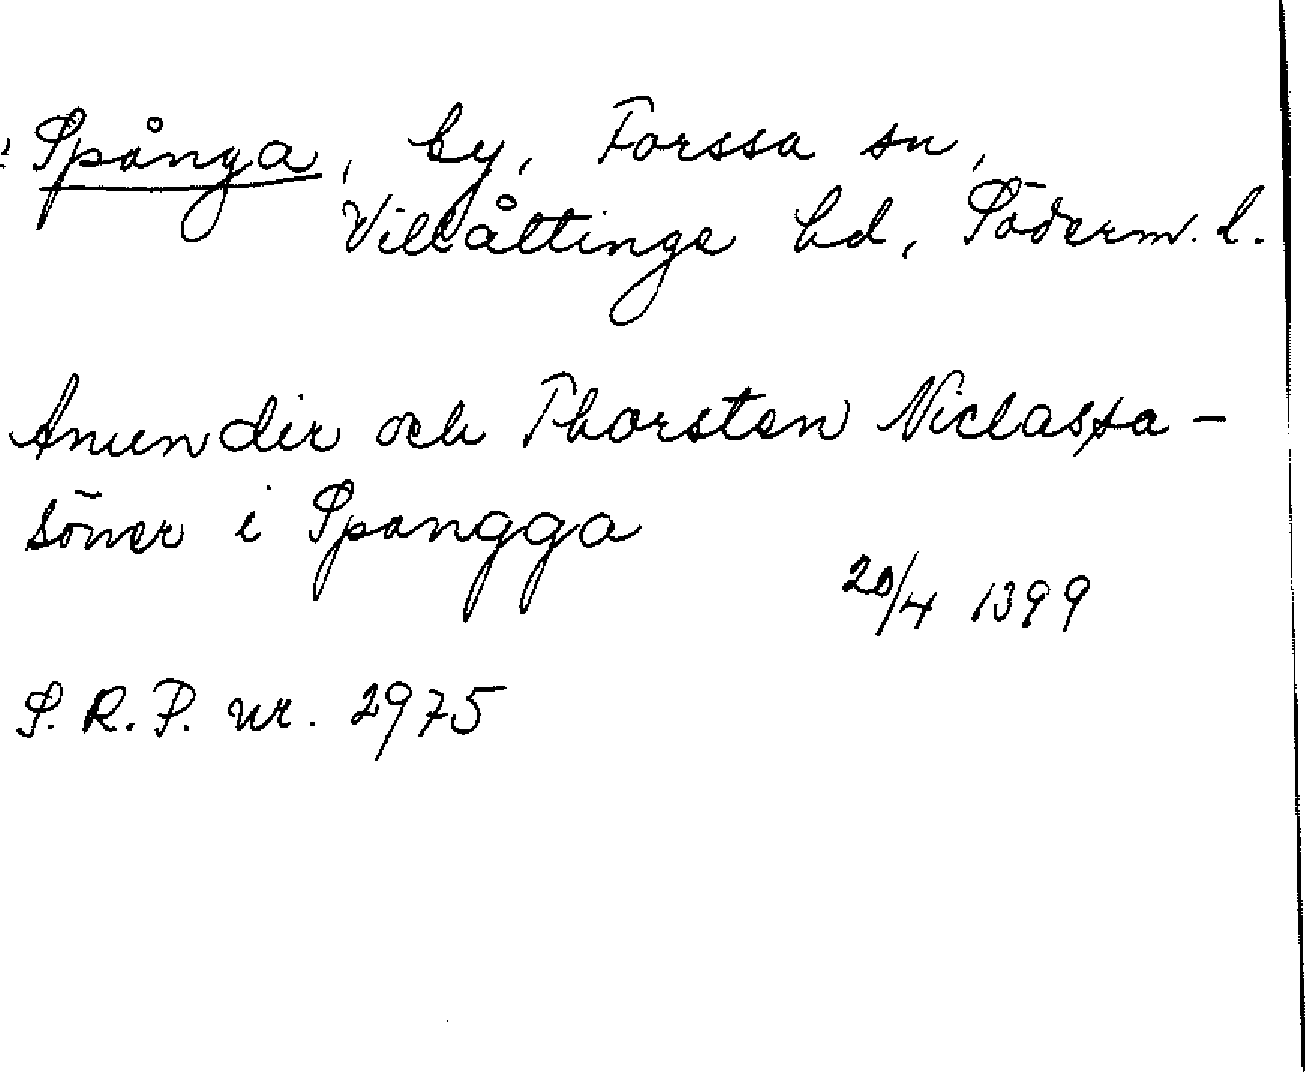 Spånga, by, Forssa sn,
Villåttinge hd, Söderm. l.
Anundir och Thorsten Niclassa-
söner i Spangga
20/4 1399
S. R. P. nr. 2975